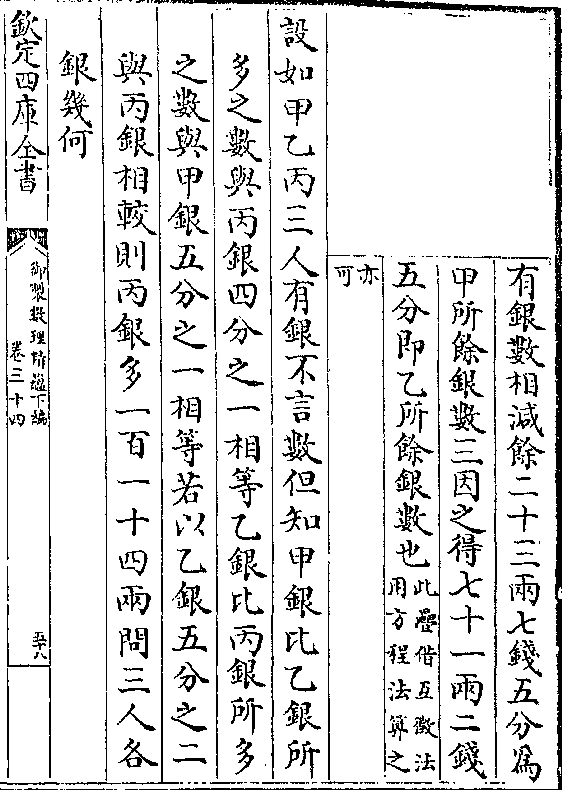 有銀數相減餘二十三兩七錢五分為
甲所餘銀數三因之得七十一兩二錢
五分即乙所餘銀數也此疊借互徵法
用方程法算之
亦
可
設如甲乙丙三人有銀不言數但知甲銀比乙銀所
多之數與丙銀四分之一相等乙銀比丙銀所多
之數與甲銀五分之一相等若以乙銀五分之二
與丙銀相較則丙銀多一百一十四兩問三人各
銀幾何
欽定四庫全書
御製數理精蘊下編
卷三十四
五十八